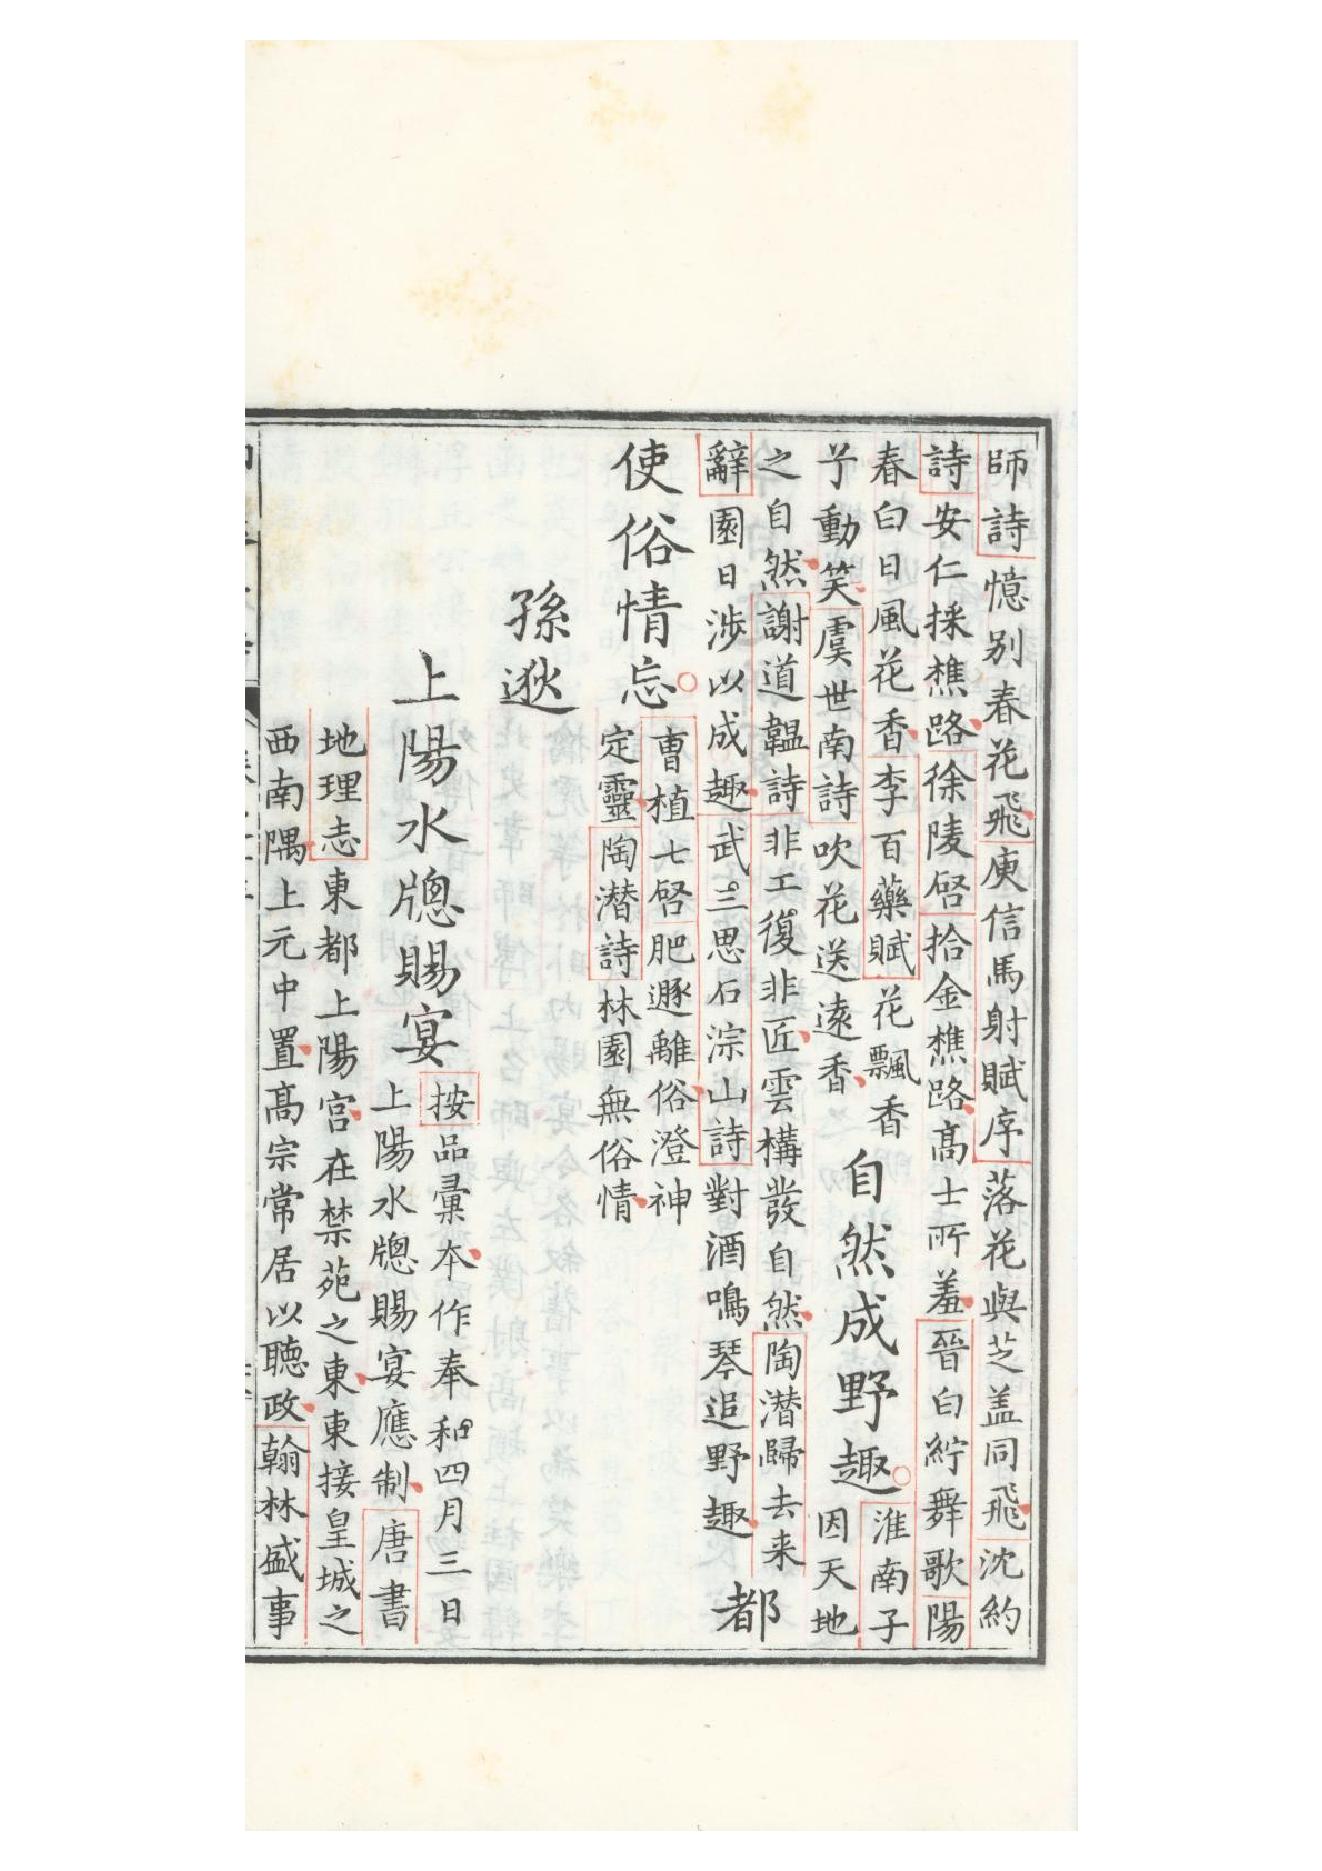 師詩憶別春花飛庾信馬射賦序落花與芝盖同飛沈約
詩安仁採樵路徐陵啓拾金樵路高士所羞晉白紵舞歌陽
春白日風花香李百藥賦花飄香
自然成野趣
淮南子
予動笑虞世南詩吹花送遠香
因天地
之自然謝道韞詩非工復非匠雲構發自然陶潛歸去来
辭園日涉以成趣武三思石淙山詩對酒鳴琴追野趣
都
使俗情忘
曺植七啓肥遯離俗澄神
定靈陶潜詩林園無俗情
孫逖
上陽水牕賜宴
按品彙本作奉和四月三日
上陽水牕賜宴應制唐書
地理志東都上陽宫在禁苑之東東接皇城之
西南隅上元中置高宗常居以聽政翰林盛事